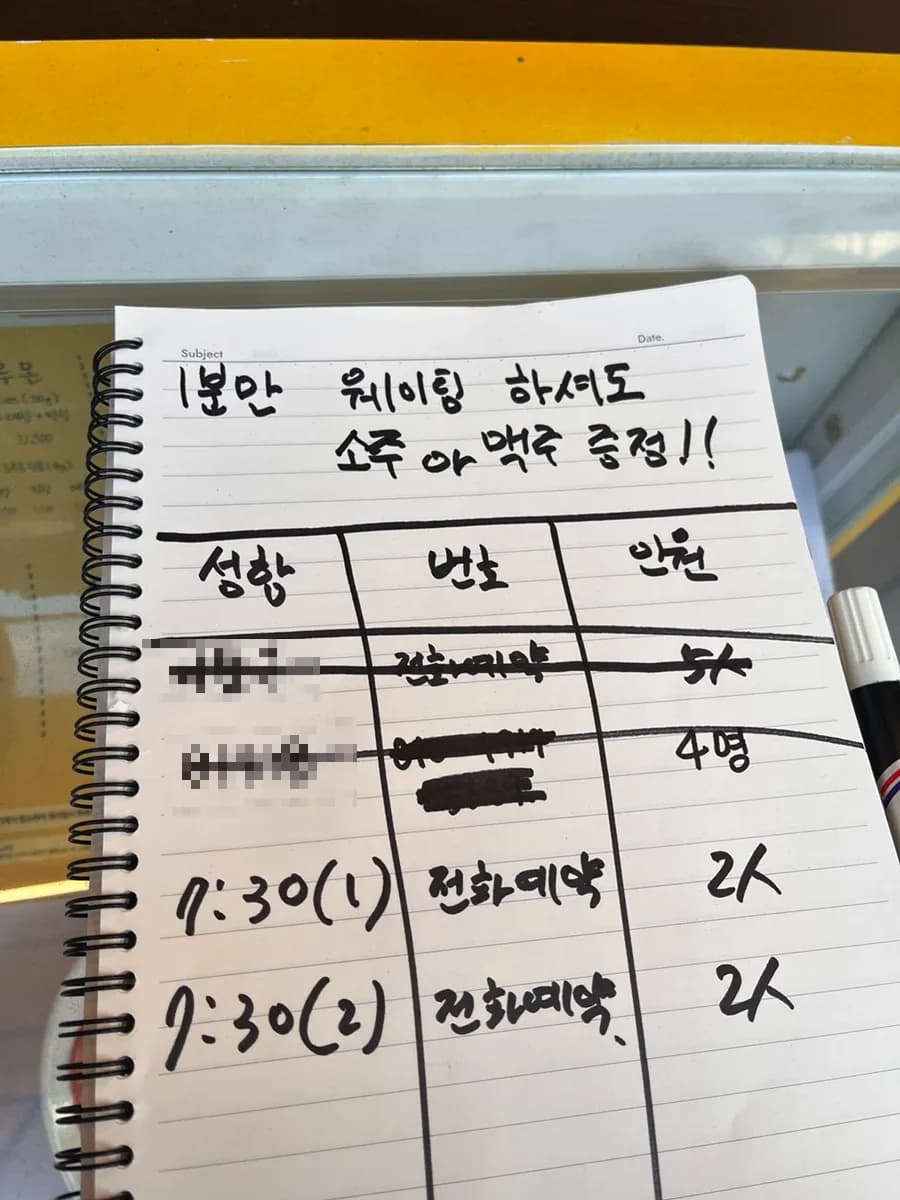 Subject
Date.
1분만 웨이팅 하셔도
소주 or 맥주 증정!!
성함 번호 인원
전화예약 5人
4명
7:30(1) 전화예약 2人
7:30(2) 전화예약 2人